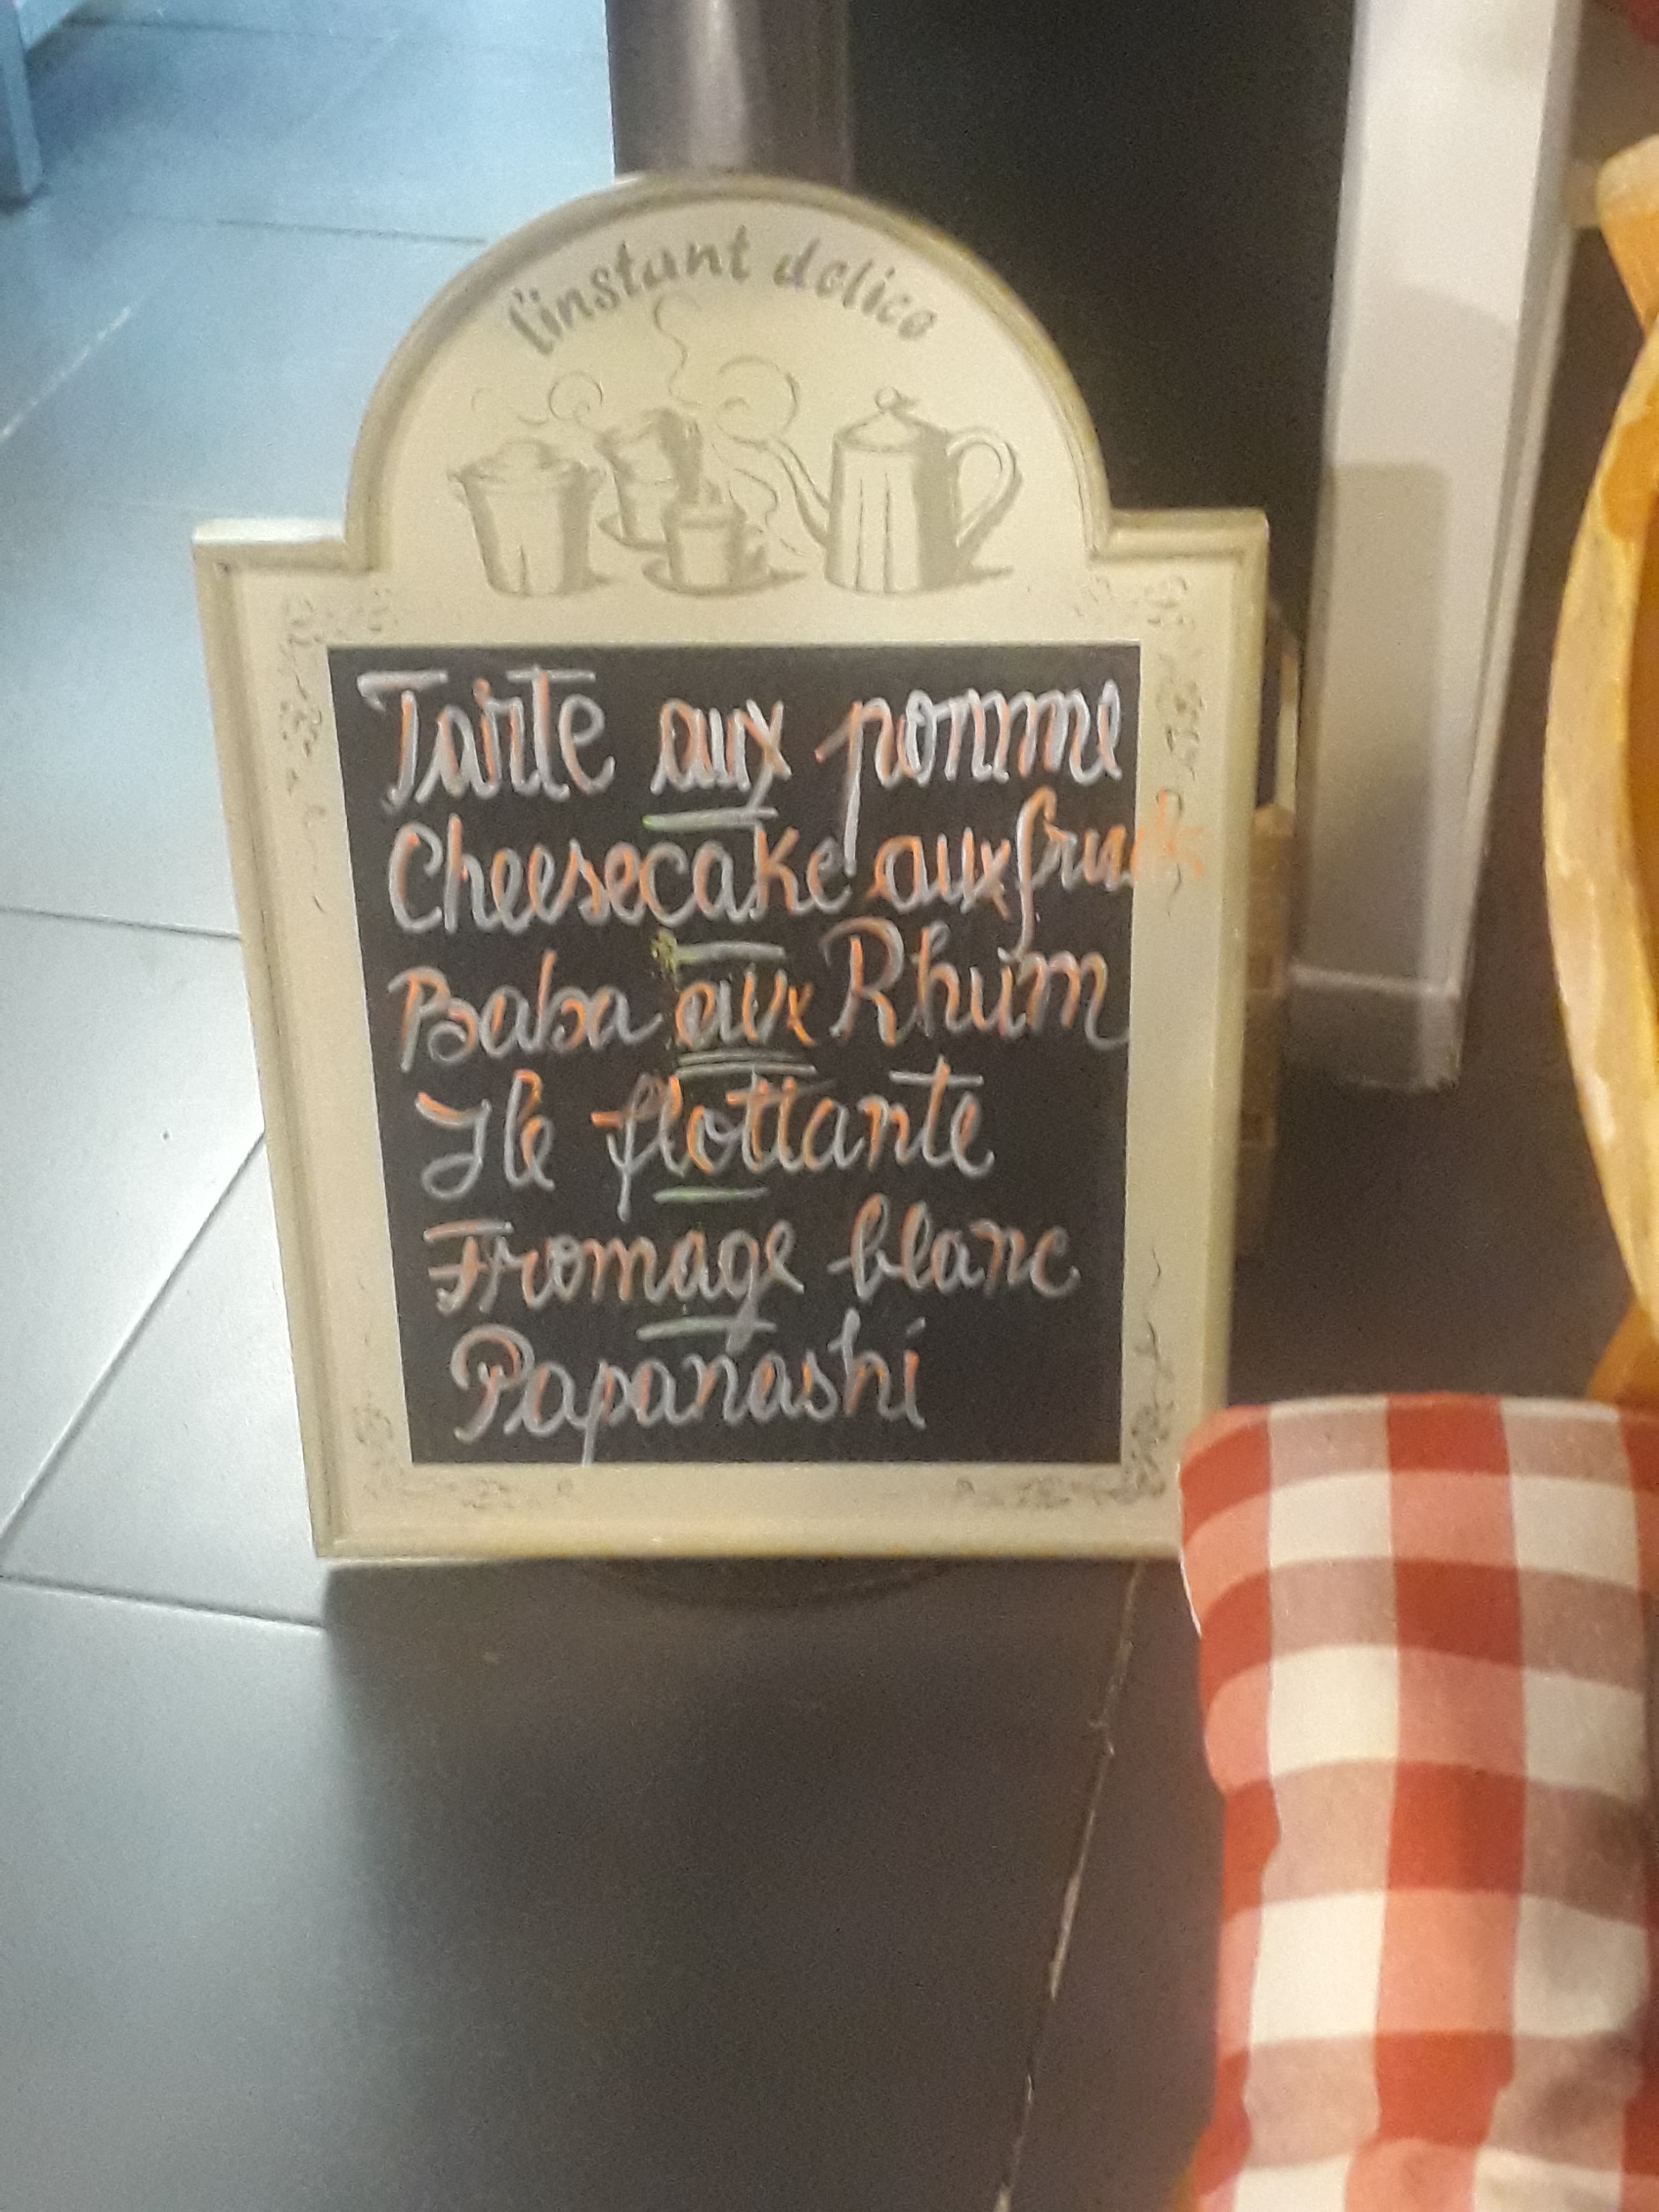 l'instant délice
Tarte aux pomme
Cheesecake aux fruits
Baba aux Rhum
Ile flottante
Fromage blanc
Papanashi